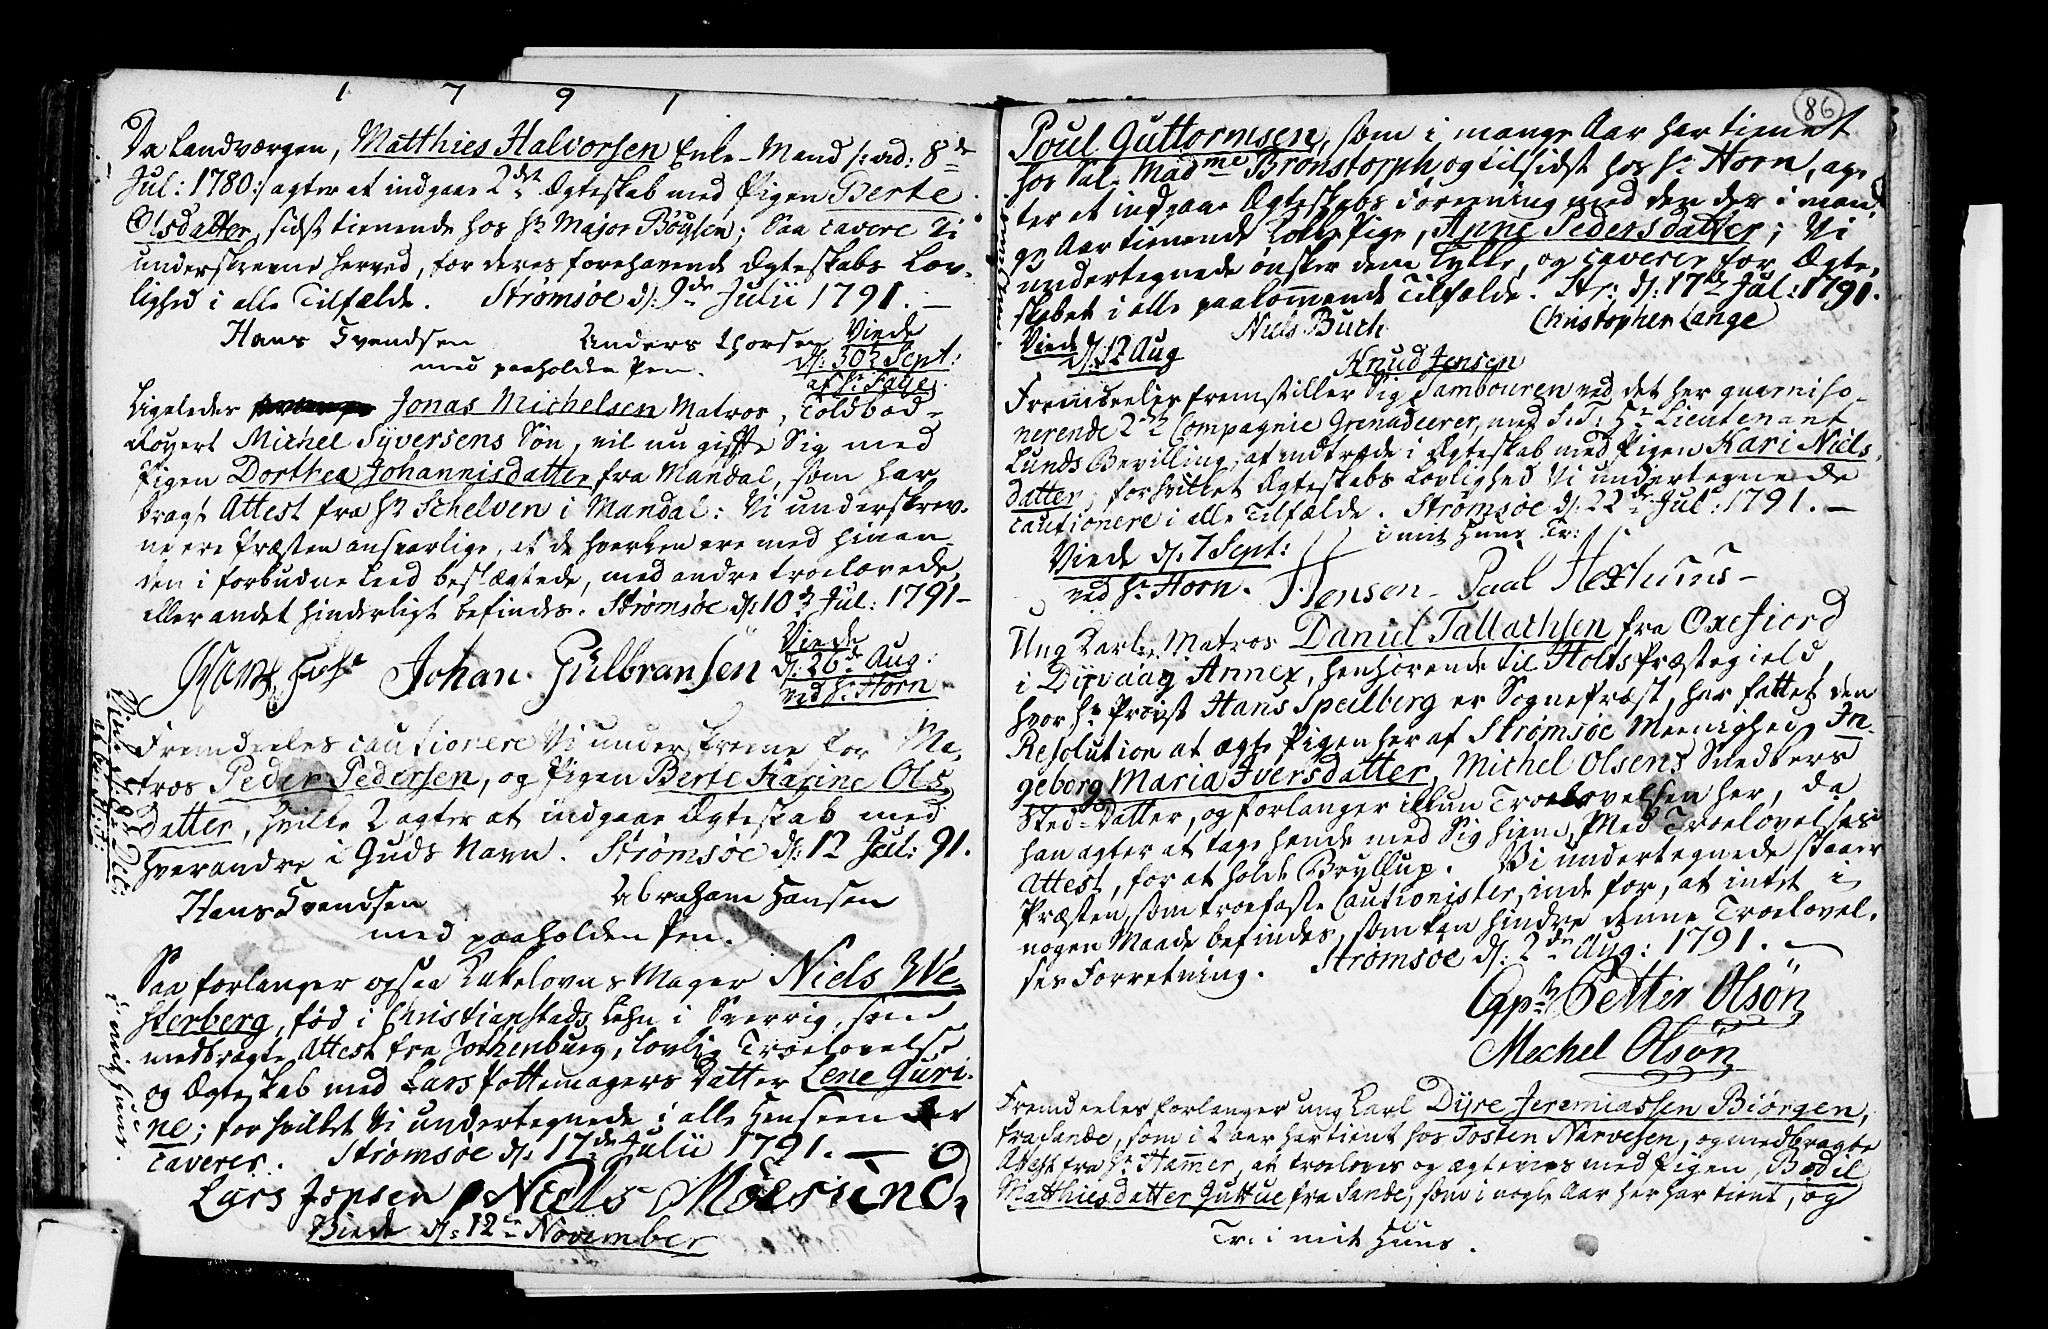 1791
Da Landværgen, Matthies Halvorsen Enke-Mand /: vid: 8de
Jul: 1780:/ agter at indgaae 2det Ægteskab med Pigen Berte
Olsdatter, sidst tienende hos Hr Major Böysen; Saa cavere Vi
underskrevne herved, for deres forehavende Ægteskabs Lov-
lighed i alle Tilfælde. Strømsøe d: 9de Julii 1791. —
Hans Svendsen Anders Thorsen
med paaholden Pen.
Viede
d: 30 Sept:
af Hr Faye.
Ligeledes Jonas Michelsen Matros, Toldbod-
Rovert Michel Syversens Søn, vil nu gifte Sig med
Pigen Dorthea Johannisdatter fra Mandal, som har
bragt Attest fra Hr Schelven i Mandal: Vi underskrev-
ne ere Præsten ansvarlige, at de hverken ere med hinan-
den i forbudne Leed beslægtede, med andre troelovede,
eller andet hinderligt befindes. Strømsøe d: 10de Jul: 1791 —
Johan Gülbransen
Viede
d: 26de Aug:
ved Hr Horn
Fremdeeles cautionere Vi underskrevne for Ma-
tros Peder Pedersen, og Pigen Berte Karine Ols-
datter, hvilke 2 agter at indgaae Ægteskab med
hverandre i Guds Navn. Strømsøe d: 12 Jul: 91.
Hans Svendsen Abraham Hansen
med paaholden Pen.
Saa forlanger ogsaa Kakelovns Mager Niels We-
sterberg, fød i Christianstads Lehn i Sverrig, som
medbragte Attest fra Gothenburg, lovlig Troelovelse
og Ægteskab med Lars Pottemagers Datter Lene Guri-
ne; for hvilket Vi undertegnede i alle Henseender
caverer. Strømsøe d: 17de Julii 1791. —
i mit Huus.
Lars Jensen Niels Moesund
Viede d: 12te November
86
Poul Guttormsen, som i mange Aar har tienet
hos Sal: Madme Brønstorph og tilsidst hos Hr Horn, ag-
ter at indgaae Ægteskabs Forening med den der i man-
ge Aar tienende Pige, Anne Pedersdatter; Vi
undertegnede ønsker dem Lykke, og caverer for Ægte-
skabet i alle paakommende Tilfælde. Str: d: 17de Jul: 1791.
Viede
d: 12 Aug
Niels Buch Christopher Lange
Knud Jensen
Fremdeeles fremstiller Sig Tambouren ved det her guarniso-
nerende 2det Compagnie Grenadeerer, med S: T: Hr Lieutenant
Lunds Bevilling, at indtræde i Ægteskab med Pigen Kari Niels-
datter; for hvilket Ægteskabs Lovlighed Vi undertegnede
cautionere i alle Tilfælde. Strømsøe d: 22de Jul: 1791. —
i mit Huus Tr:
Viede d: 7 Sept:
ved Hr Horn.
Hensen Paal
Ung Karl, Matros Daniel Tallachsen fra Oxefiord
i Dyrvaag Annex, henhørende til Holts Præstegield,
hvor Hr Provst Hans Speilberg er Sognepræst, har fattet den
Resolution at ægte Pigen her af Strømsøe Meenighed, In-
geborg Maria Iversdatter, Michel Olsens Snedkers
Sted-Datter, og forlanger ikkun Troelovelsen her, da
han agter at tage hende med Sig hiem, Med Troelovelses-
Attest, for at holde Bryllup. Vi undertegnede staaer
Præsten, som troefaste Cautionister, inde for, at intet i
nogen Maade befindes, som kan hindre denne Troelovel-
ses Forretning. Strømsøe d: 2de Aug: 1791. —
Petter Olsön
Mechel Olsön
Fremdeeles forlanger ung Karl Dyre Jeremiassen Biörgen,
fra Sande, som i 2 aar har tient hos Tosten Narvesen, og medbragte
Attest fra Hr Hammer, at troeloves og ægtevies med Pigen Bodil
Matthiesdatter Juttue fra Sande, som i nogle Aar her har tient, og
Tr: i mit Huus.